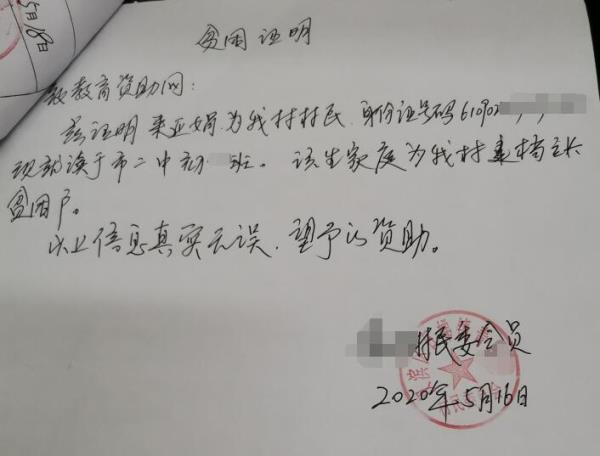 5月18日
贫困证明
教育资助网:
兹证明来亚娟为我村村民,身份证号码610902
现就读于市二中初 班。该生家庭为我村建档立卡
贫困户。
以上信息真实无误,望予以资助。
村民委会员
2020年5月16日